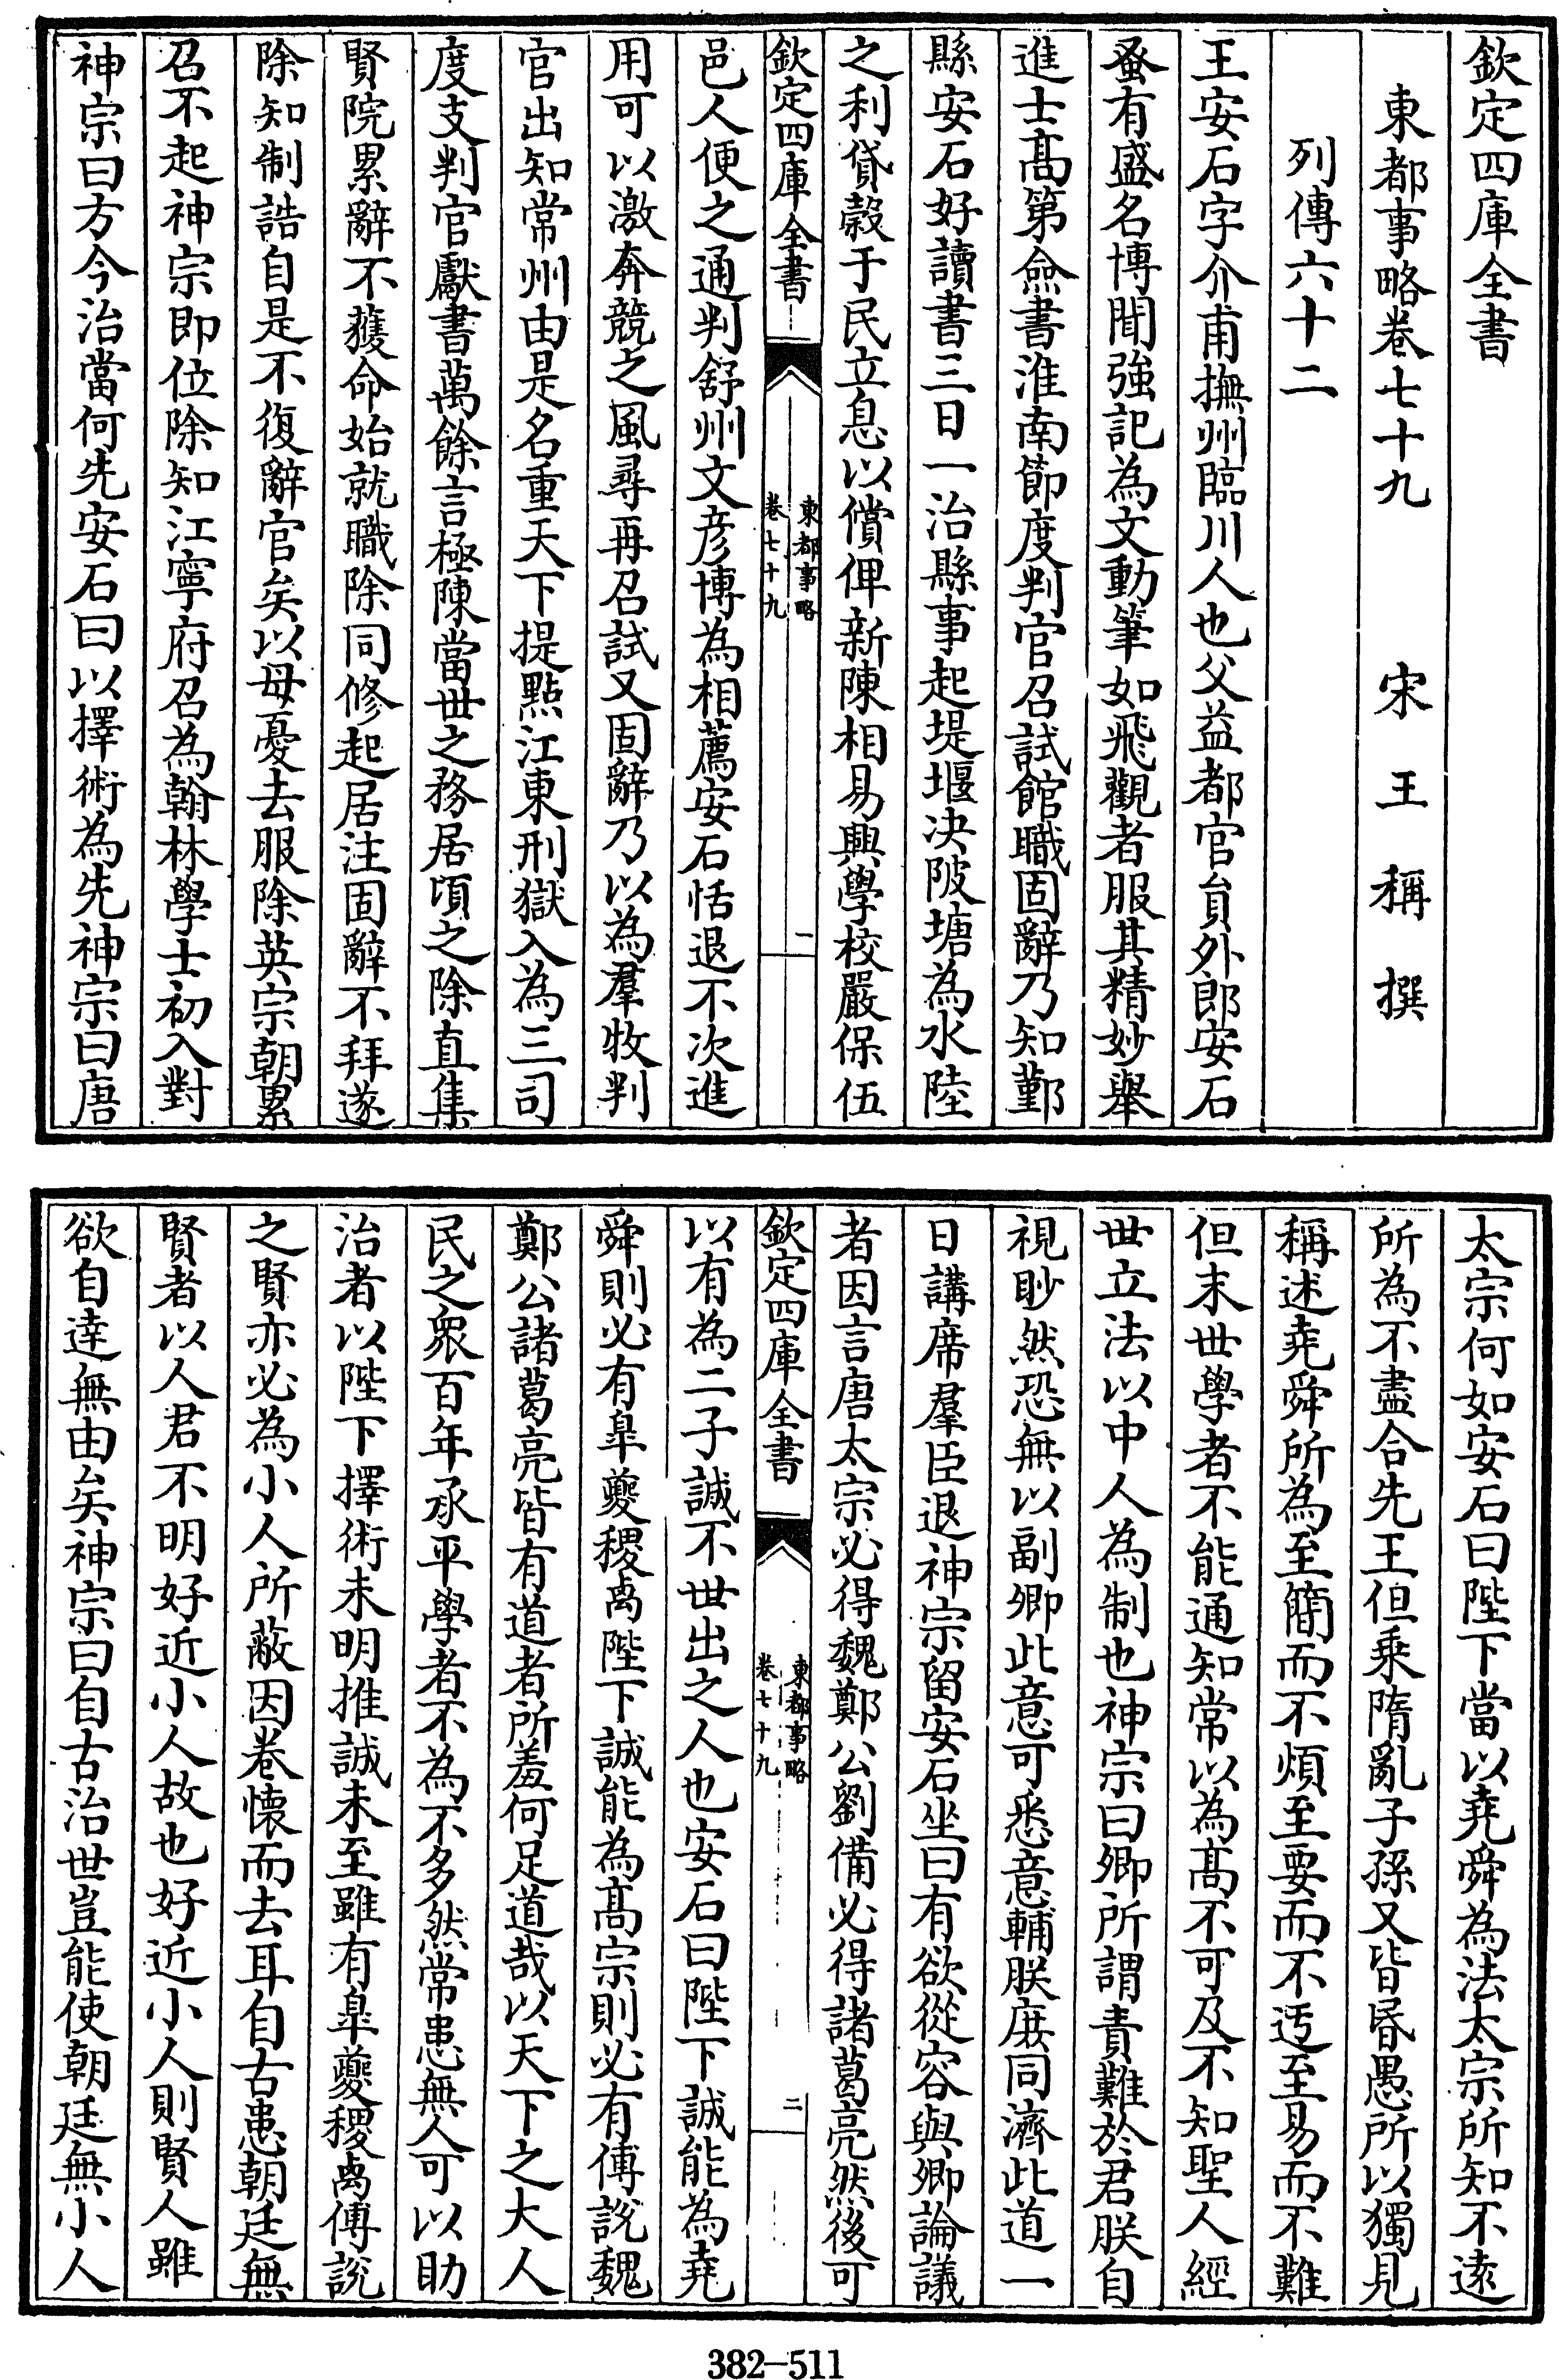 欽定四庫全書
東都事略卷七十九
宋王稱撰
列傳六十二
王安石字介甫撫州臨川人也父益都官員外郎安石
蚤有盛名博聞強記為文動筆如飛觀者服其精妙舉
進士髙第僉書淮南節度判官召試館職固辭乃知鄞
縣安石好讀書三日一治縣事起堤堰决陂塘為水陸
之利貸穀于民立息以償俾新陳相易興學校嚴保伍
欽定四庫全書
東都事略
卷七十九
一
邑人便之通判舒州文彦博為相薦安石恬退不次進
用可以激奔競之風尋再召試又固辭乃以為羣牧判
官出知常州由是名重天下提點江東刑獄入為三司
度支判官獻書萬餘言極陳當世之務居頃之除直集
賢院累辭不獲命始就職除同修起居注固辭不拜遂
除知制誥自是不復辭官矣以母憂去服除英宗朝累
召不起神宗即位除知江寧府召為翰林學士初入對
神宗曰方今治當何先安石曰以擇術為先神宗曰唐
太宗何如安石曰陛下當以堯舜為法太宗所知不遠
所為不盡合先王但乘隋亂子孫又皆昬愚所以獨見
稱述堯舜所為至簡而不煩至要而不迃至易而不難
但末世學者不能通知常以為髙不可及不知聖人經
世立法以中人為制也神宗曰卿所謂責難於君朕自
視眇然恐無以副卿此意可悉意輔朕庻同濟此道一
日講席羣臣退神宗留安石坐曰有欲從容與卿論議
者因言唐太宗必得魏鄭公劉備必得諸葛亮然後可
欽定四庫全書
東都事略
卷七十九
二
以有為二子誠不世出之人也安石曰陛下誠能為堯
舜則必有臯夔稷卨陛下誠能為髙宗則必有傅說魏
鄭公諸葛亮皆有道者所羞何足道哉以天下之大人
民之衆百年承平學者不為不多然常患無人可以助
治者以陛下擇術未明推誠未至雖有臯夔稷卨傅說
之賢亦必為小人所蔽因卷懐而去耳自古患朝廷無
賢者以人君不明好近小人故也好近小人則賢人雖
欲自逹無由矣神宗曰自古治世豈能使朝廷無小人
382-511